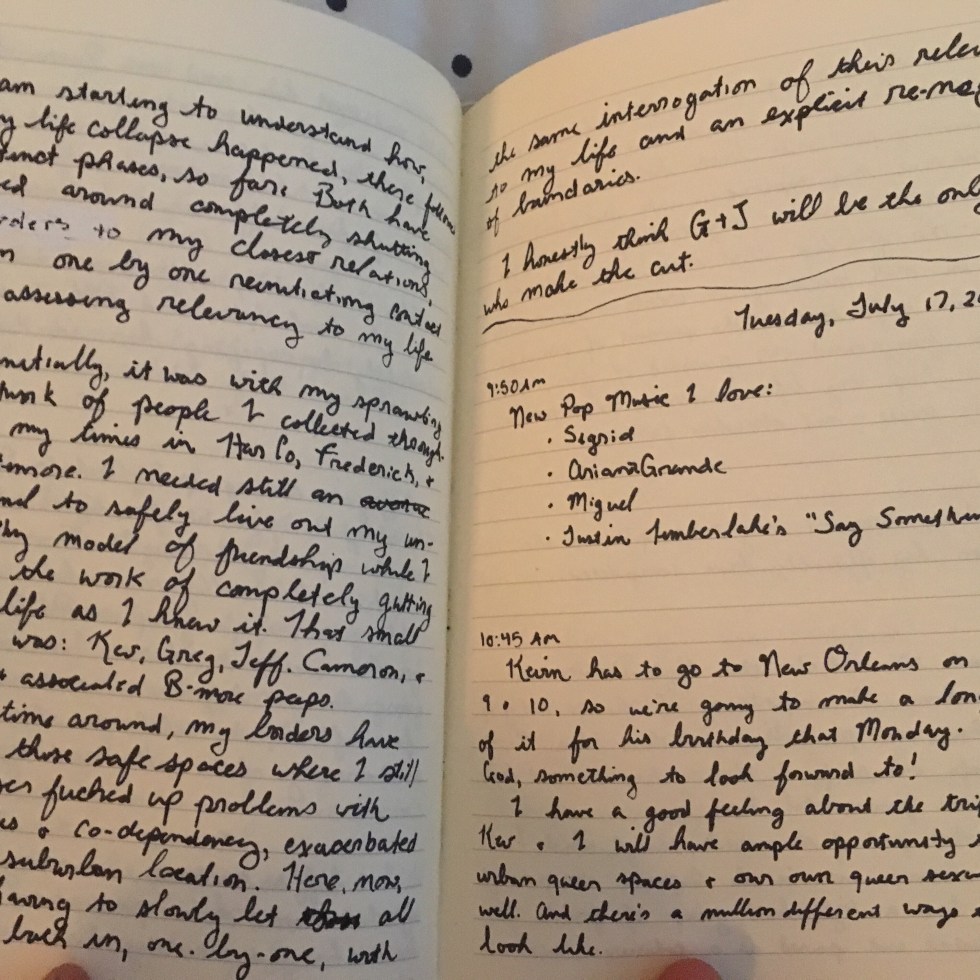 am starting to understand how,
y life collapse happened, there follow
tinct phases, so far. Both have
ed around completely shutting
rders to my closest relations,
n one by one renegotiating contact
assessing relevancy to my life
nitially, it was with my sprawling
twork of people I collected through
my times in Har Co, Frederick, +
timore. I needed still an
nd to safely live out my un-
thy model of friendship while I
the work of completely gutting
life as I knew it. That small
was: Kev, Greg, Jeff. Cameron, +
+ associated B-more peeps.
time around, my borders have
those safe spaces where I still
fucked up problems with
es + co-dependency, exacerbated
suburban location. Here, now,
having to slowly let all
back in, one-by-one, with
the same interrogation of their relev
to my life and an explicit re-neg
of boundaries.
I honestly think G+J will be the only
who make the cut.
Tuesday, July 17, 2
9:50AM
New Pop Music I love:
• Sigrid
• Ariana Grande
• Miguel
• Justin Timberlake's "Say Somethin
10:45 AM
Kevin has to go to New Orleans on
9 + 10, so we're going to make a lon
of it for his birthday that Monday.
God, something to look forward to!
I have a good feeling about the trip
Kev + I will have ample opportunity
urban queer spaces + our own queer sexu
well. And there's a million different ways
look like.